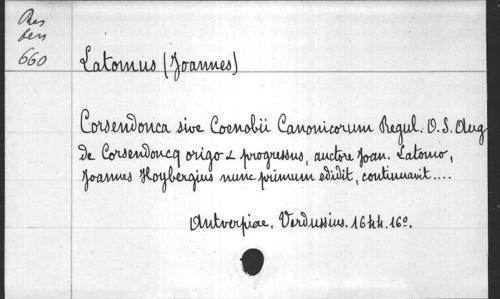 Res
660
Latomus (Joannes)
Corsendonca sive Coenobii Canonicorum Regul. O.S. Aug
de Corsendoncq origo & progressus, auctore Joan. Latomo,
Joannes Hoybergius nunc primum edidit, continuavit....
Antverpiae. Verdussius. 1644. 16º.